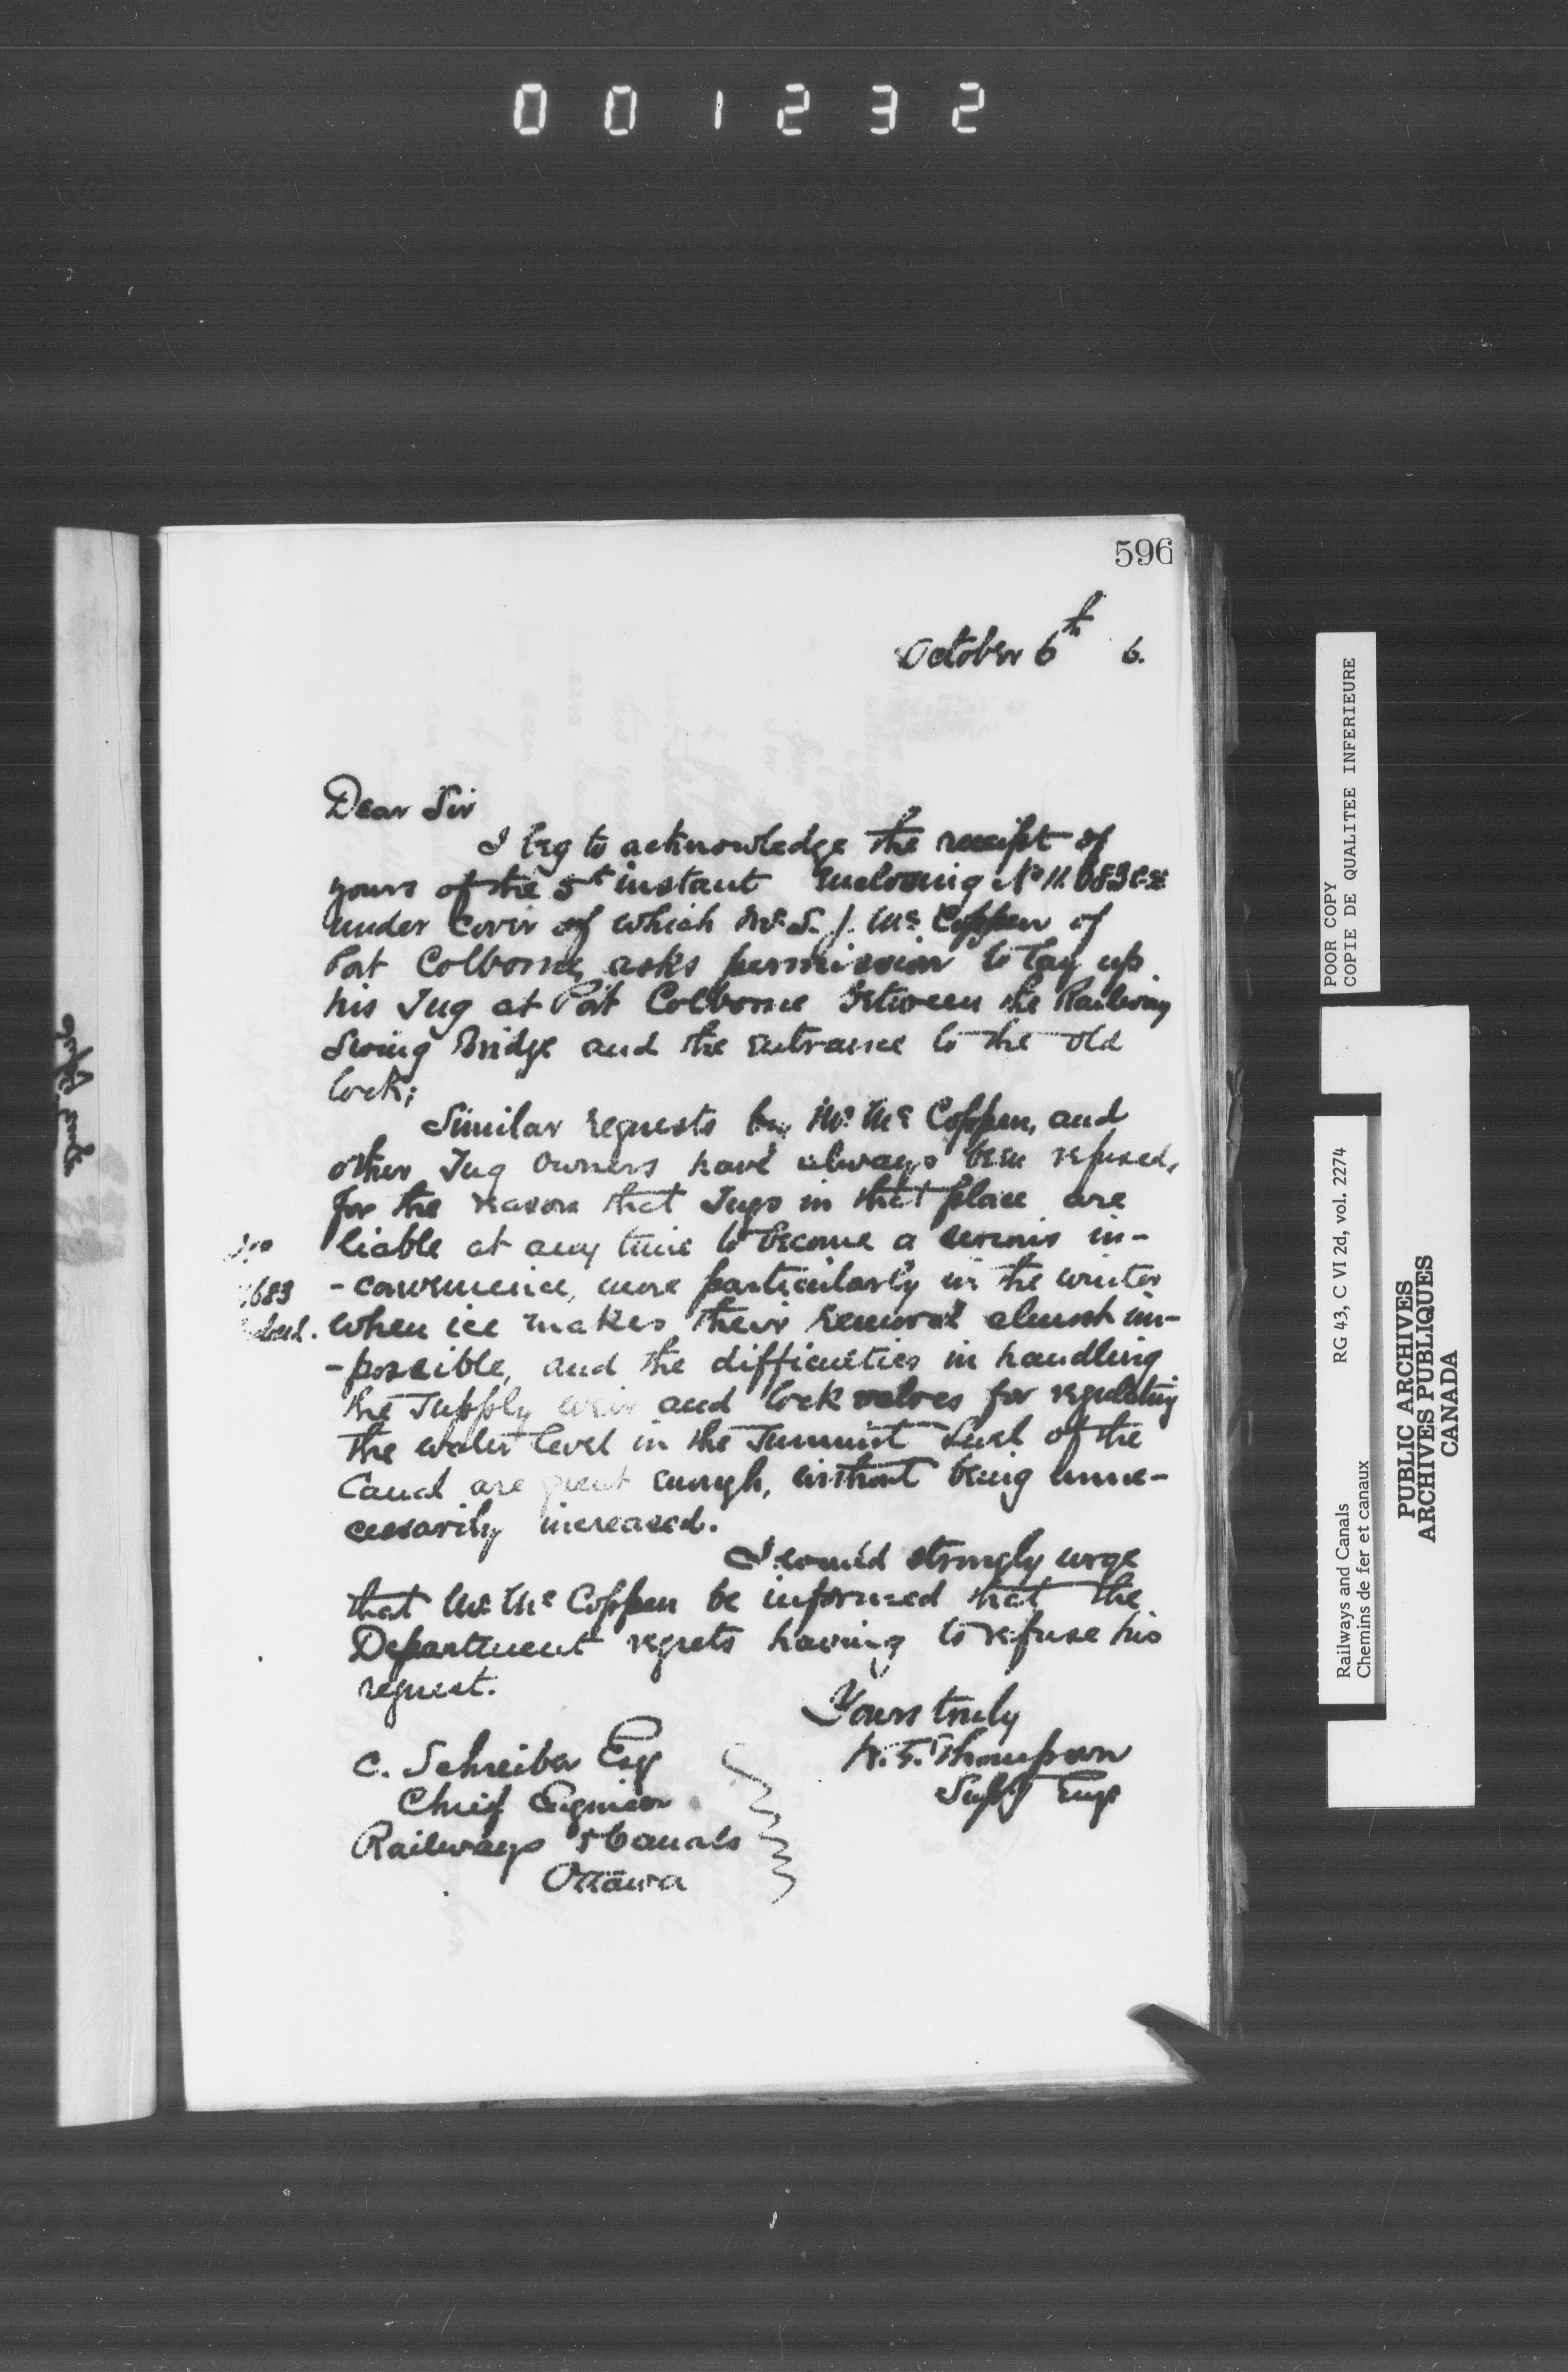 001232
596
October 6th 6.
Dear Sir
I beg to acknowledge the receipt of
yours of the 5th instant enclosing No
under cover of which Mr. S. J. McCoppen of
Port Colborne, asks permission to lay up
his Tug at Port Colborne between the Railway
Swing Bridge and the entrance to the old
lock;
Similar requests by Mr. McCoppen, and
other Tug owners have always been refused,
for the reason that Tugs in that place are
liable at any time to become a serious in-
-convenience, more particularly in the winter
when ice makes their removal almost im-
-possible, and the difficulties in handling
the supply weir and lock valves for regulating
the water level in the Summit Level of the
Canal are great enough, without being unne-
cessarily increased.
I would strongly urge
that Mr. McCoppen be informed that the
Department regrets having to refuse his
request.
Yours truly
W. G. Thompson
Suptg Engr
C. Schreiber Esq
Chief Engineer
Railways & Canals
Ottawa
683
POOR COPY
COPIE DE QUALITEE INFERIEURE
Railways and Canals RG 43, C VI 2d, vol. 2274
Chemins de fer et canaux
PUBLIC ARCHIVES
ARCHIVES PUBLIQUES
CANADA